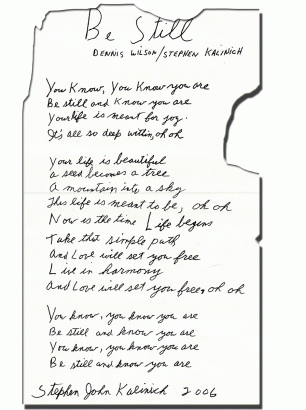 Be Still
DENNIS WILSON/STEPHEN KALINICH
You Know, You Know you are
Be still and Know you are
Your life is meant for joy.
It's all so deep within, oh oh
Your life is beautiful
a seed becomes a tree
a mountain into a sky
This life is meant to be, oh oh
Now is the time Life begins
Take that simple path
and Love will set you free
Live in harmony
and Love will set you free, oh oh
You know, you know you are
Be still and know you are
You know, you know you are
Be still and know you are
Stephen John Kalinich 2006